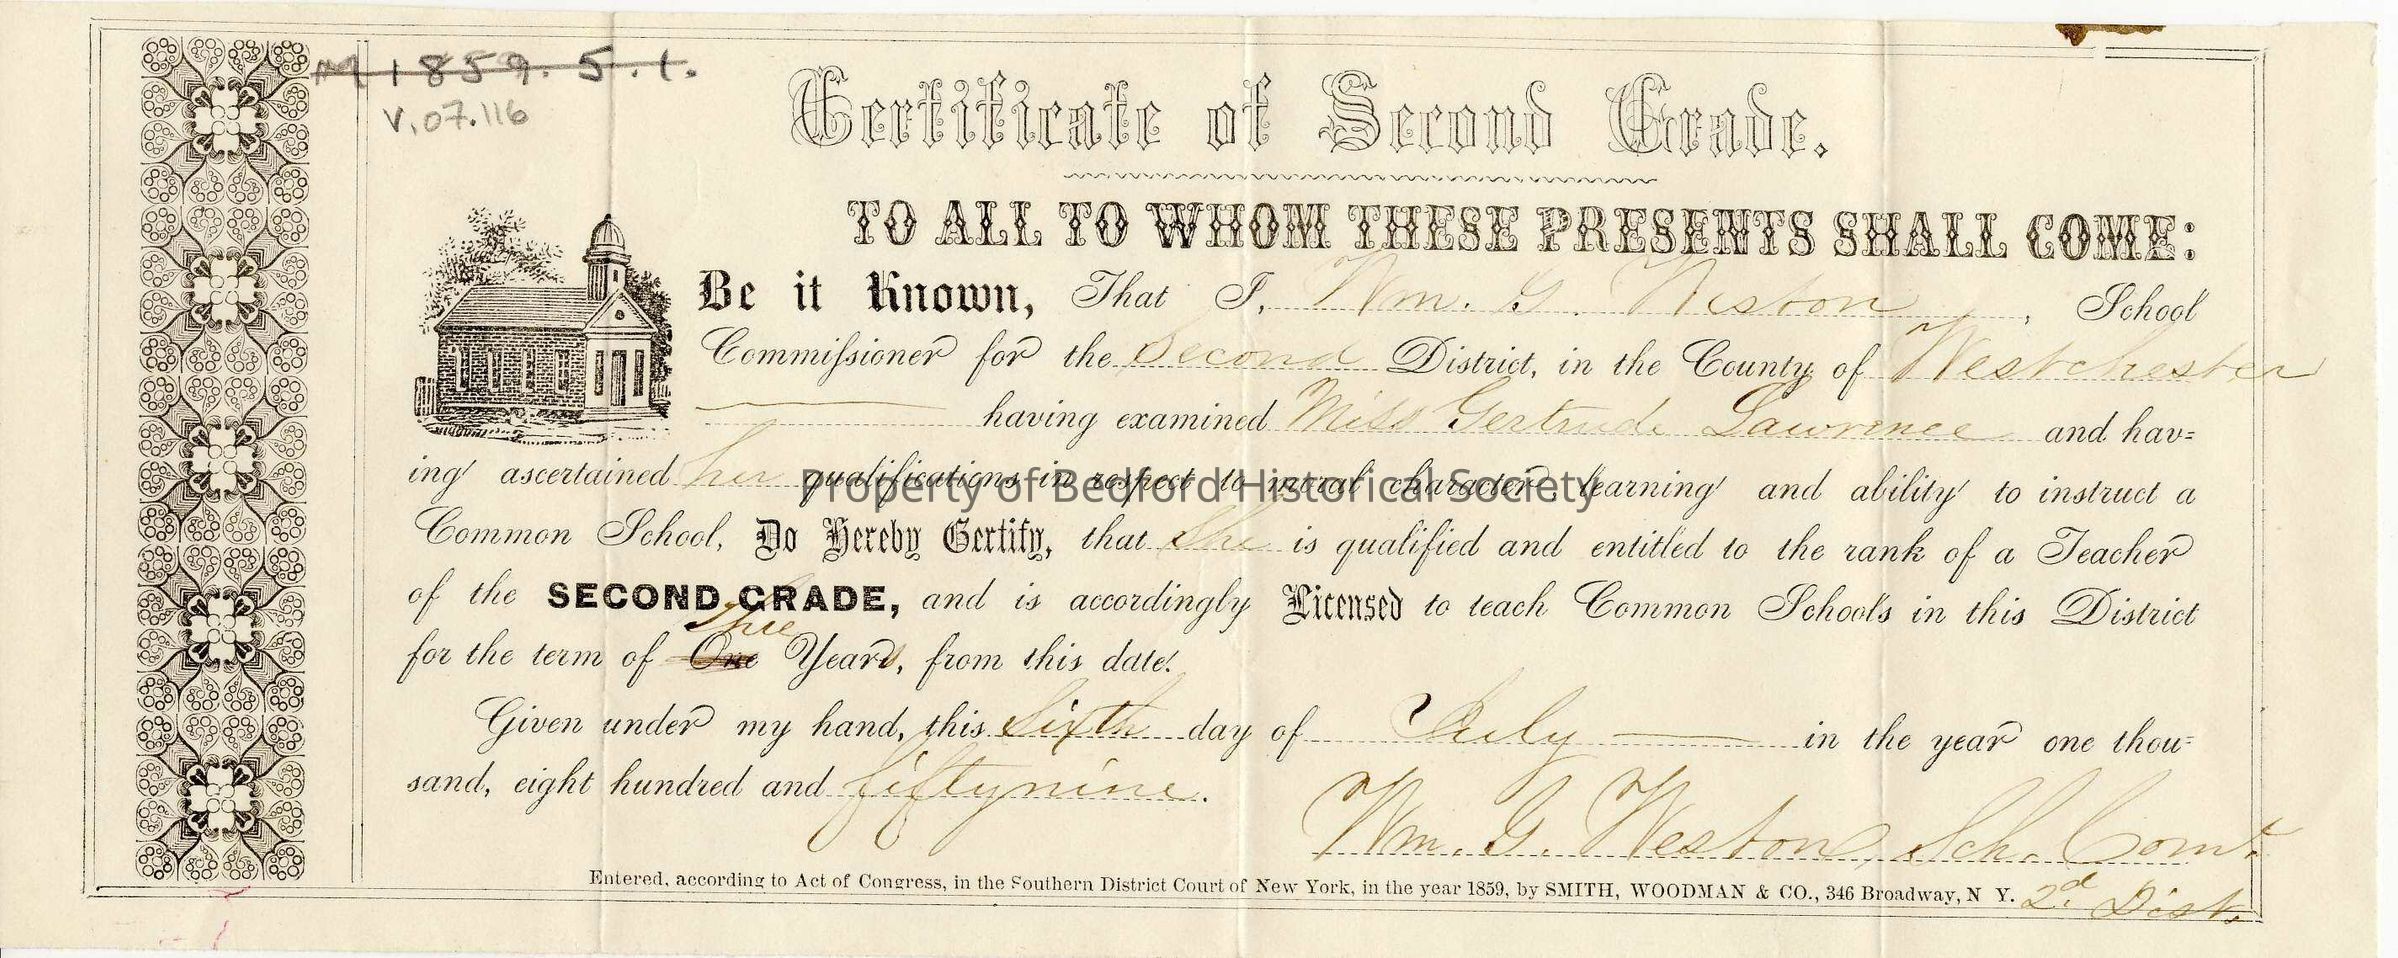 M 1859. 5. 1.
V.07.116
Certificate of Second Grade.
TO ALL TO WHOM THESE PRESENTS SHALL COME:
Be it Known, That I, Wm. G. Weston, School
Commissioner for the Second District, in the County of Westchester
having examined Miss Gertrude Lawrence and hav=
ing ascertained her qualifications in respect to moral character, learning and ability to instruct a
Property of Bedford Historical Society
Common School, Do Hereby Certify, that She is qualified and entitled to the rank of a Teacher
of the SECOND GRADE, and is accordingly Licensed to teach Common Schools in this District
for the term of One Years, from this date.
Given under my hand, this Sixth day of July in the year one thou=
sand, eight hundred and fiftynine.
Wm. G. Weston, Sch. Comr.
2d Dist.
Entered, according to Act of Congress, in the Southern District Court of New York, in the year 1859, by SMITH, WOODMAN & CO., 346 Broadway, N Y.